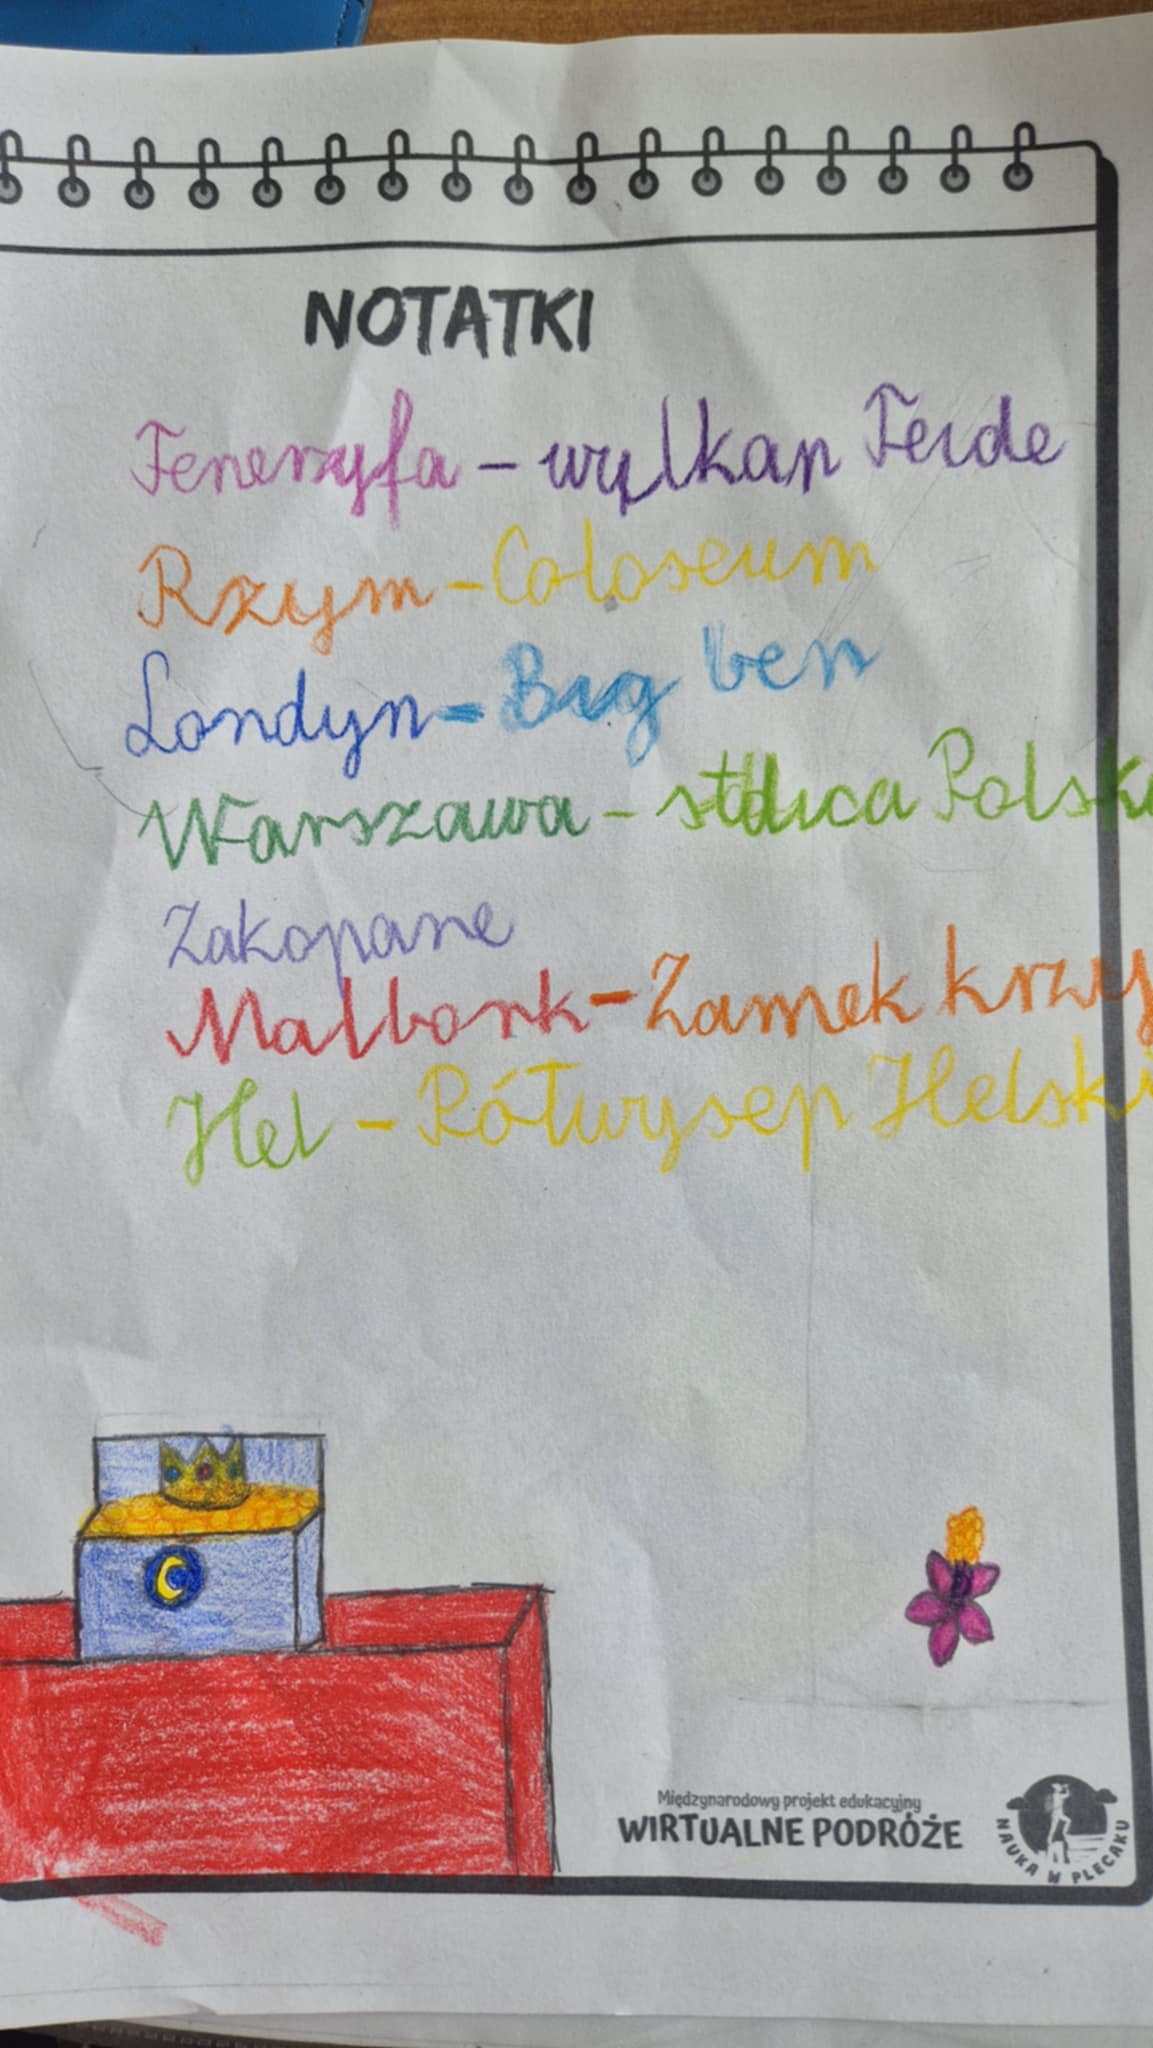 NOTATKI
Teneryfa – wylkan Teide
Rzym – Coloseum
Londyn – Big ben
Warszawa – stolica Polski
Zakopane
Malbork – Zamek krzy
Hel – Półwysep Helski
Międzynarodowy projekt edukacyjny
WIRTUALNE PODRÓŻE
NAUKA W PLECAKU